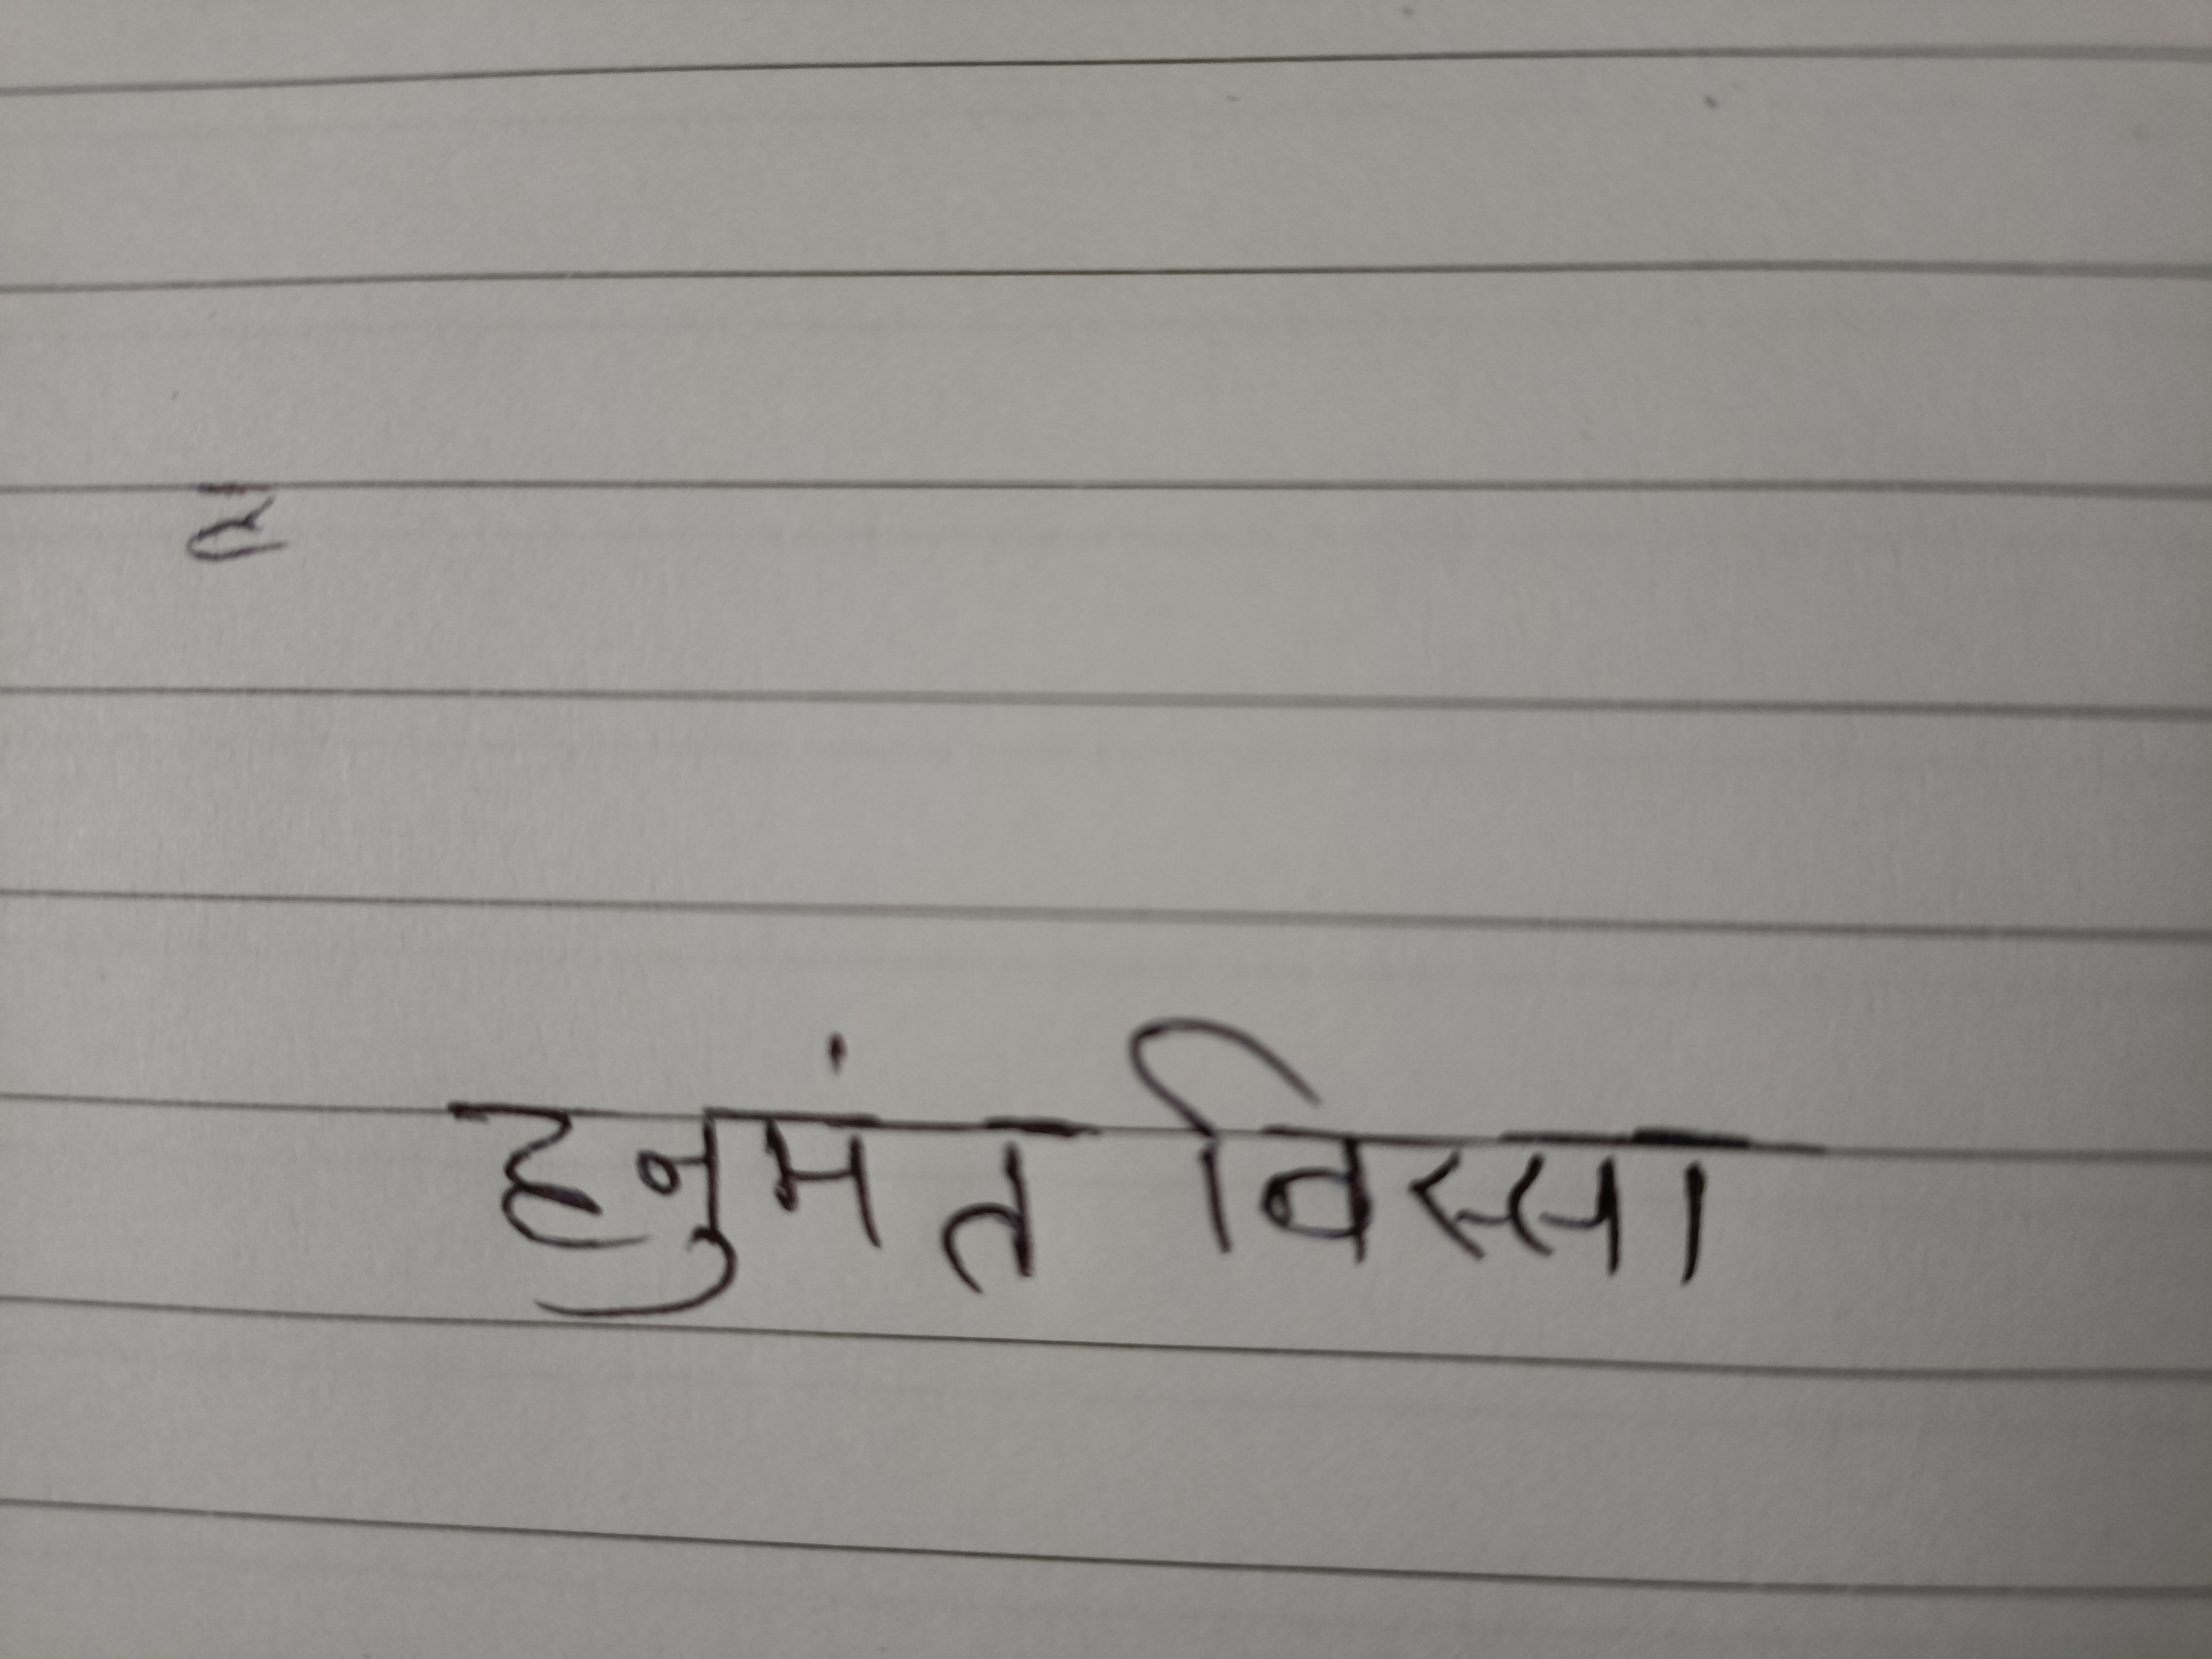 हनुमंत विस्सा